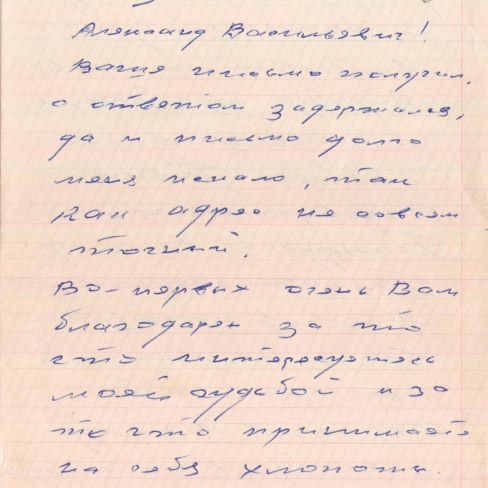 Александр Васильевич!
Ваше письмо получил,
с ответом задержался,
да и письмо долго
меня искало, так
как адрес не совсем
точный.
Во-первых очень Вам
благодарен за то
что интересуетесь
моей судьбой и за
то что принимаете
на себя хлопоты.